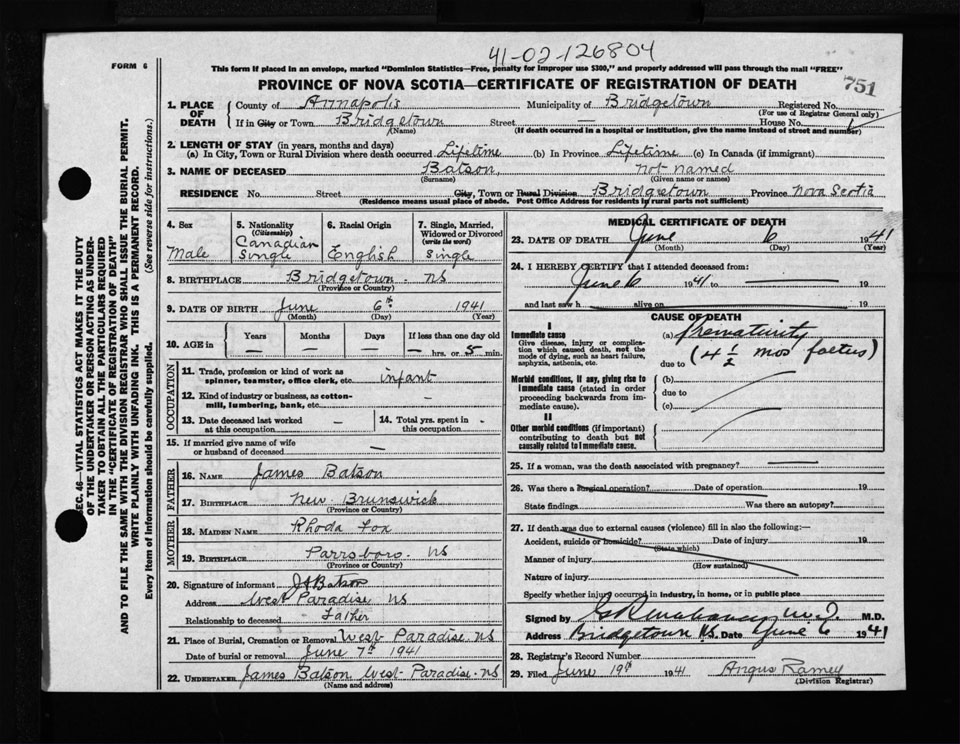 41-02-126804
FORM 6
This form if placed in an envelope, marked "Dominion Statistics—Free, penalty for improper use $300," and properly addressed will pass through the mail "FREE"
PROVINCE OF NOVA SCOTIA—CERTIFICATE OF REGISTRATION OF DEATH
751
SEC. 46—VITAL STATISTICS ACT MAKES IT THE DUTY
OF THE UNDERTAKER OR PERSON ACTING AS UNDER-
TAKER TO OBTAIN ALL THE PARTICULARS REQUIRED
IN THE "CERTIFICATE OF REGISTRATION OF DEATH"
AND TO FILE THE SAME WITH THE DIVISION REGISTRAR WHO SHALL ISSUE THE BURIAL PERMIT.
WRITE PLAINLY WITH UNFADING INK. THIS IS A PERMANENT RECORD.
Every item of information should be carefully supplied. (See reverse side for instructions.)
1. PLACE OF DEATH County of Annapolis Municipality of Bridgetown Registered No.
(For use of Registrar General only)
If in City or Town Bridgetown Street — House No. 1
(Name) (If death occurred in a hospital or institution, give the name instead of street and number)
2. LENGTH OF STAY (in years, months and days)
(a) In City, Town or Rural Division where death occurred Lifetime (b) In Province Lifetime (c) In Canada (if immigrant)
3. NAME OF DECEASED Batson, not named
(Surname) (Given name or names)
RESIDENCE No. Street City, Town or Rural Division Bridgetown Province Nova Scotia
(Residence means usual place of abode. Post Office Address for residents in rural parts not sufficient)
4. Sex Male
5. Nationality (Citizenship) Canadian single
6. Racial Origin English
7. Single, Married, Widowed or Divorced (write the word) Single
8. BIRTHPLACE Bridgetown. NS
(Province or Country)
9. DATE OF BIRTH June 6th 1941
(Month) (Day) (Year)
10. AGE in Years — Months — Days — If less than one day old — hrs. or 5 min.
OCCUPATION
11. Trade, profession or kind of work as spinner, teamster, office clerk, etc. infant
12. Kind of industry or business, as cotton-mill, lumbering, bank, etc. —
13. Date deceased last worked at this occupation —
14. Total yrs. spent in this occupation -
15. If married give name of wife or husband of deceased —
FATHER
16. NAME James Batson
17. BIRTHPLACE New Brunswick
(Province or Country)
MOTHER
18. MAIDEN NAME Rhoda Fox
19. BIRTHPLACE Parrsboro. NS
(Province or Country)
20. Signature of informant J A Batson
Address West Paradise NS
Relationship to deceased Father
21. Place of Burial, Cremation or Removal West Paradise. NS
Date of burial or removal June 7th 1941
22. UNDERTAKER James Batson West Paradise. NS
(Name and address)
MEDICAL CERTIFICATE OF DEATH
23. DATE OF DEATH June 6 1941
(Month) (Day) (Year)
24. I HEREBY CERTIFY that I attended deceased from:
June 6 1941 to — 19
and last saw h alive on 19
CAUSE OF DEATH
I
Immediate cause
Give disease, injury or complica-
tion which caused death, not the
mode of dying, such as heart failure,
asphyxia, asthenia, etc.
(a) Prematurity
(4½ mos foetus)
due to
Morbid conditions, if any, giving rise to
immediate cause (stated in order
proceeding backwards from im-
mediate cause).
(b)
due to
(c)
II
Other morbid conditions (if important)
contributing to death but not
causally related to immediate cause.
25. If a woman, was the death associated with pregnancy? —
26. Was there a surgical operation? Date of operation 19
State findings Was there an autopsy?
27. If death was due to external causes (violence) fill in also the following:—
Accident, suicide or homicide? Date of injury 19
(State which)
Manner of injury
(How sustained)
Nature of injury
Specify whether injury occurred in industry, in home, or in public place
Signed by M.D. M.D.
Address Bridgetown N.S. Date June 6 1941
28. Registrar's Record Number
29. Filed June 19th 1941 Angus Ramey
(Division Registrar)